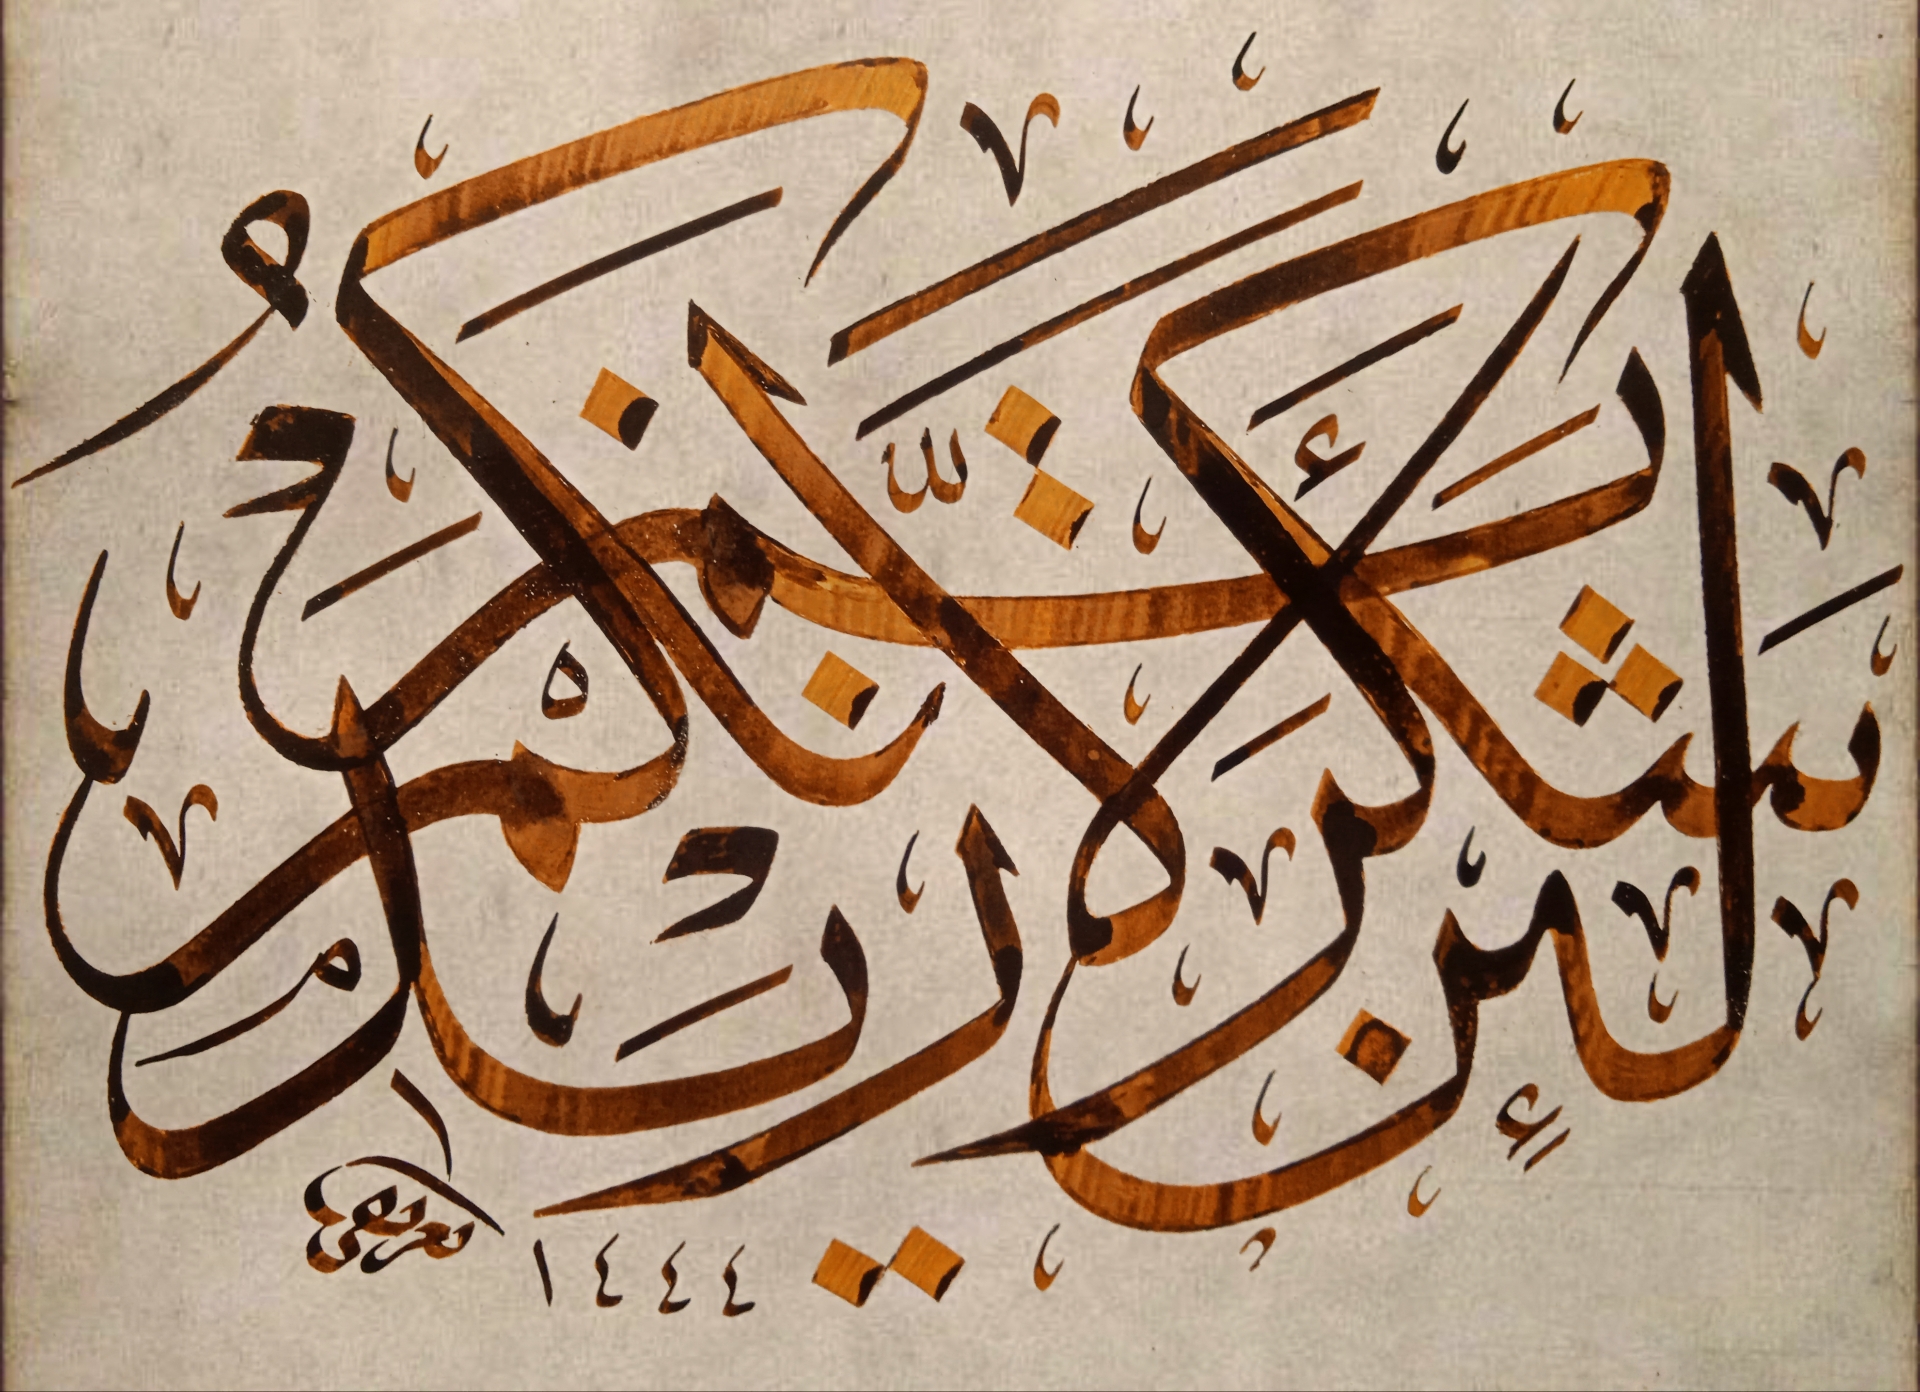 لَئِنْ شَكَرْتُمْ لَأَزِيدَنَّكُمْ
١٤٤٤